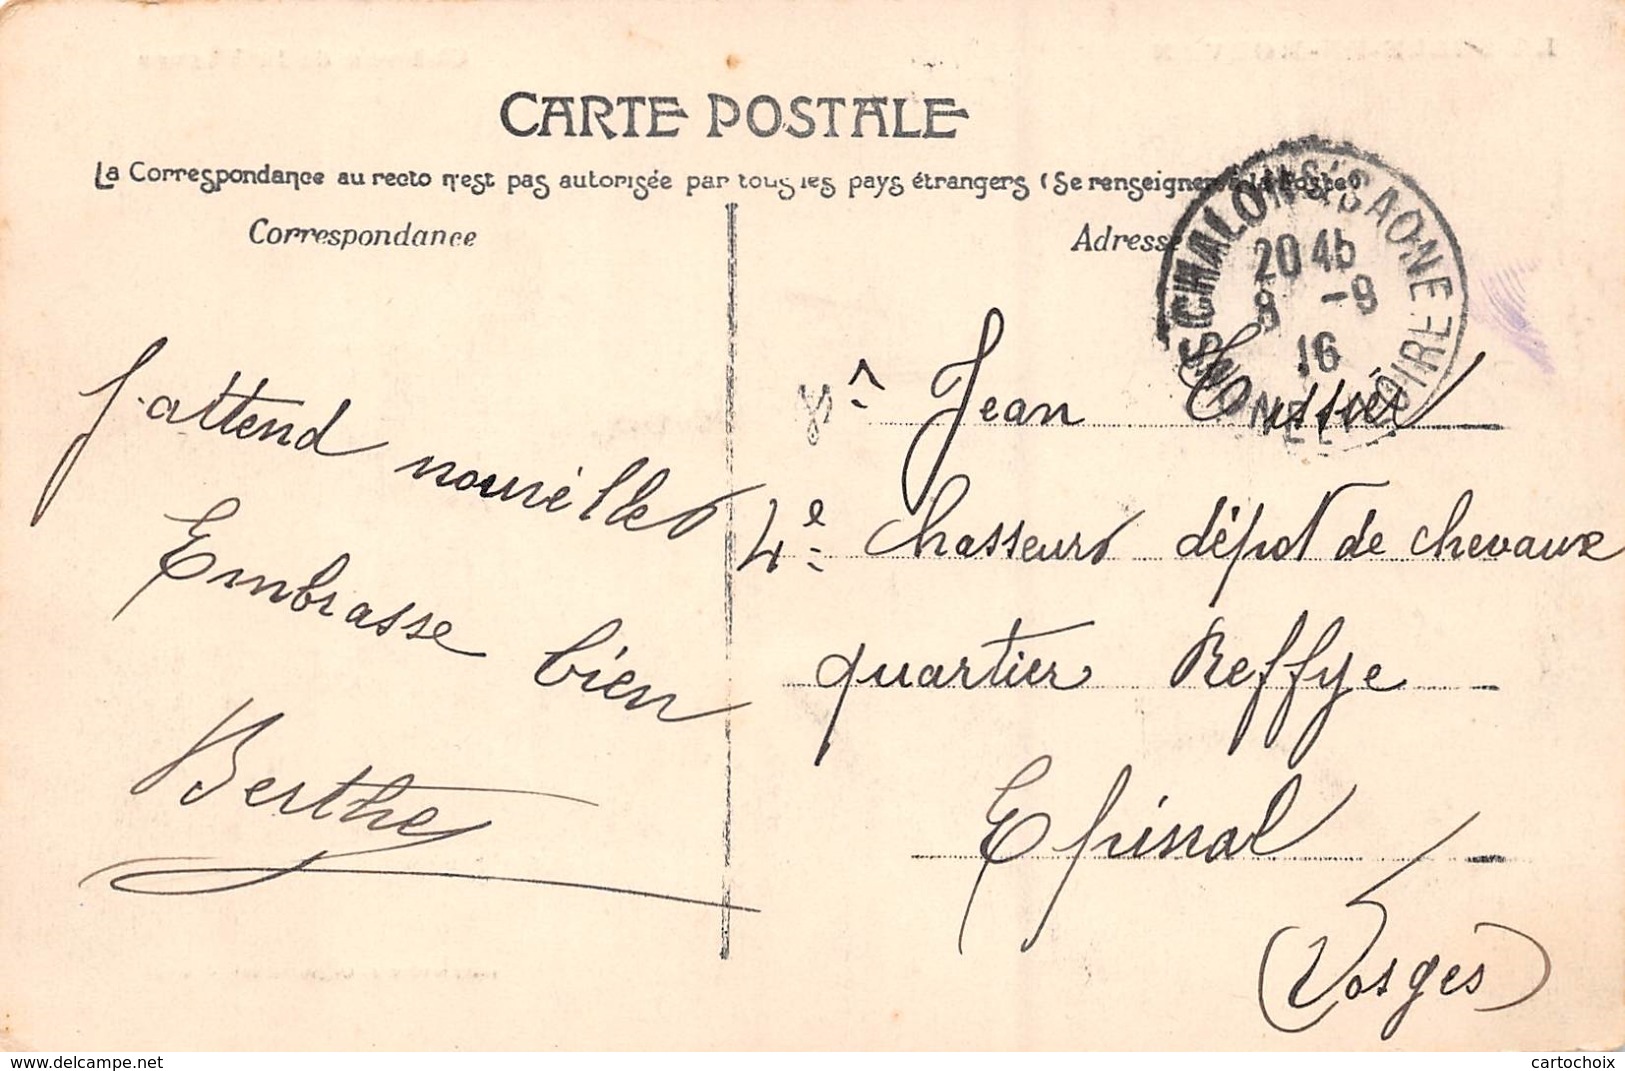 CARTE POSTALE
La Correspondance au recto n'est pas autorisée par tous les pays étrangers (Se renseigner à la Poste)
Correspondance
Adresse
CHALON S/ SAONE
20 45
8 -9
16
SAONE ET LOIRE
J'attend nouvelles
Embrasse bien
Berthe
Jean
4e Chasseurs dépot de chevaux
quartier Reffye
Epinal
(Vosges)
https://www.delcampe.net
cartochoix